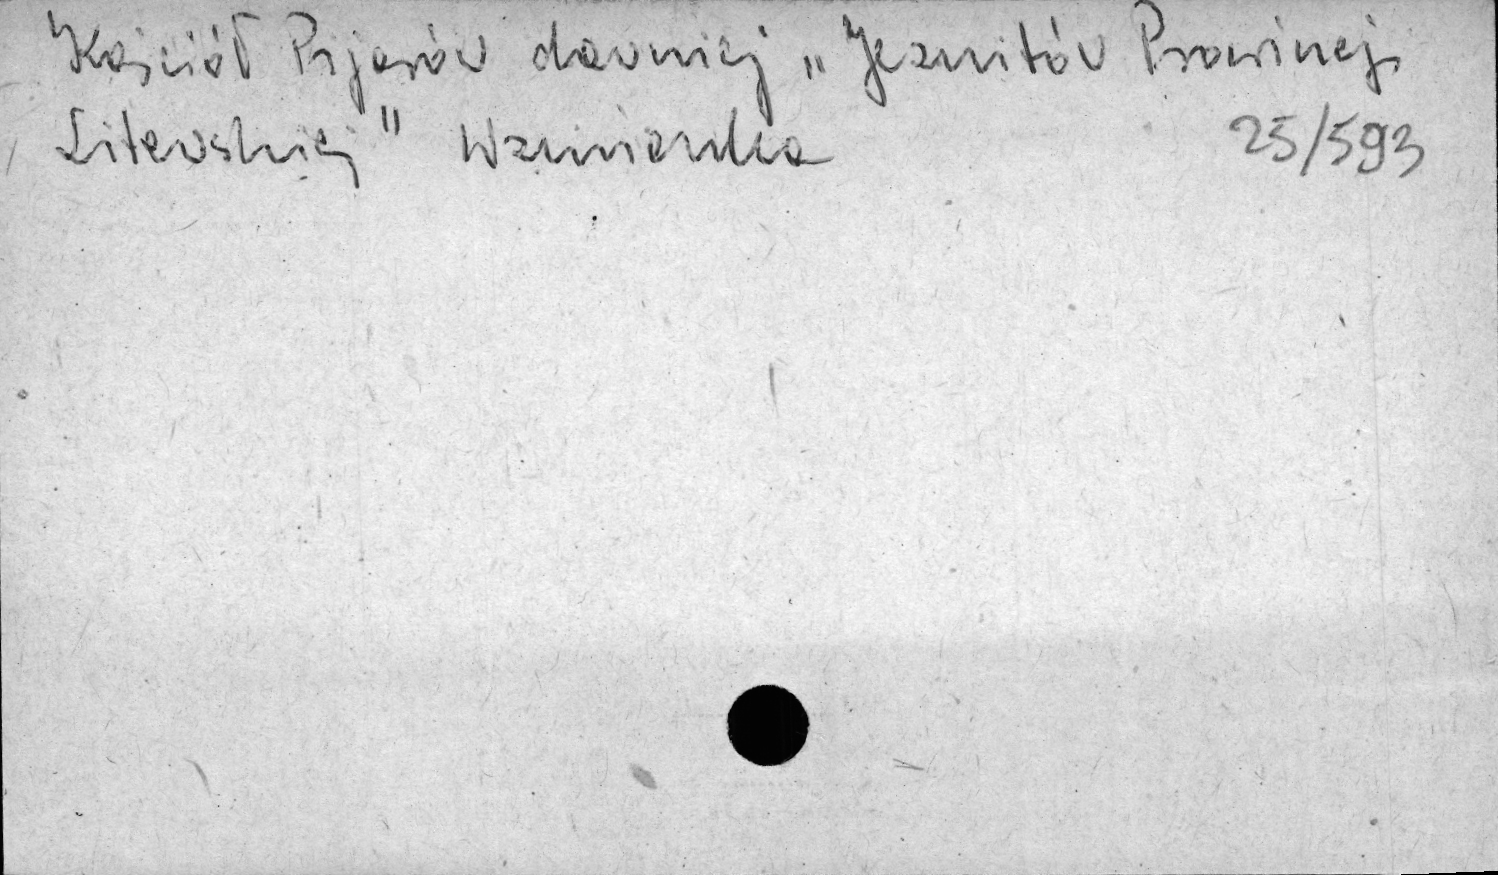 Kościół Pijarów dawniej „Jezuitów Prowincji
Litewskiej" wzmianka 25/593